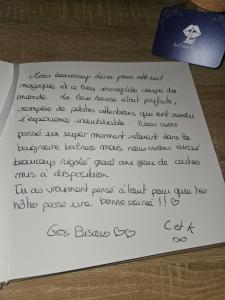 Merci beaucoup d'être pour cet nuit
magique et ce lieu incroyable coupé du
monde. Le lieu même était parfait,
remplie de petites attentions qui ont rendu
l'expérience inoubliable. Nous avons
passé un super moment relaxant dans la
baignoire balnéo mais nous avons aussi
beaucoup rigolé grand aux jeux de cartes
mis à disposition.
Tu as vraiment pensé à tout pour que tes
hôtes passe une bonne soirée !! ♡
Gros Bisous ♡♡
C et K
∞